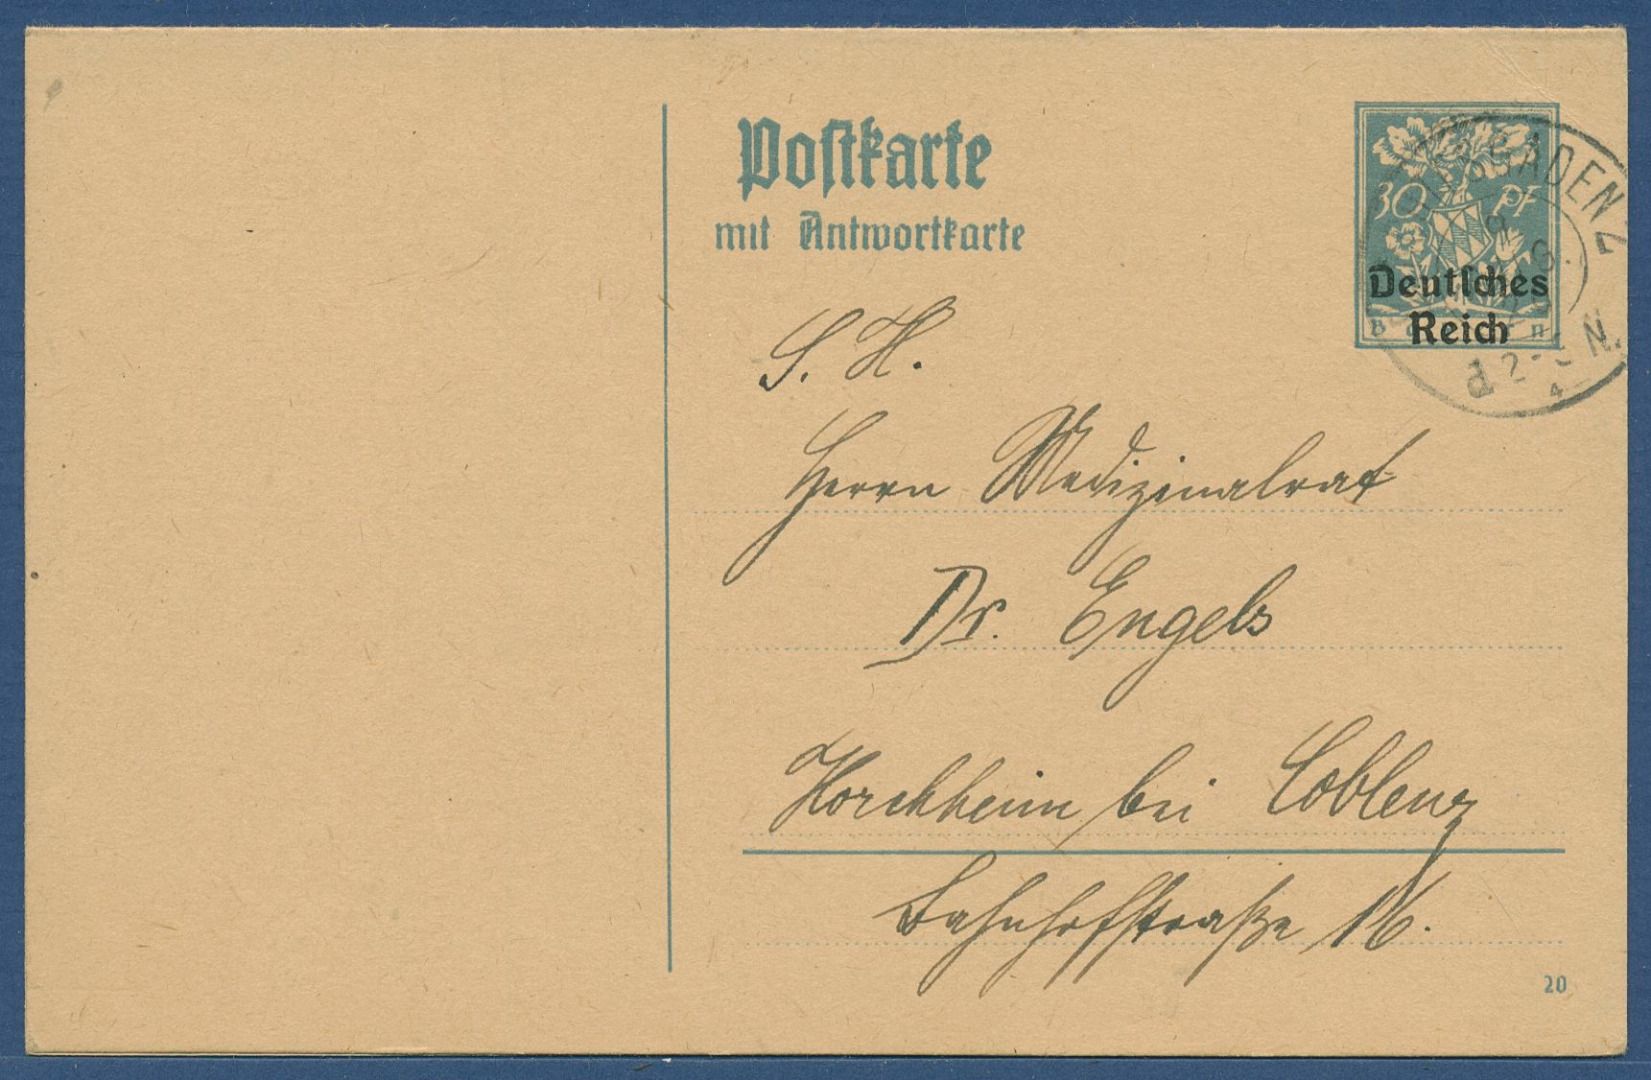 Postkarte
mit Antwortkarte
30 PF
Deutsches
Reich
GADENZ
S. H.
Herrn Medizinalrat
Dr. Engels
Horchheim bei Coblenz
Bahnhofstraße 16.
20